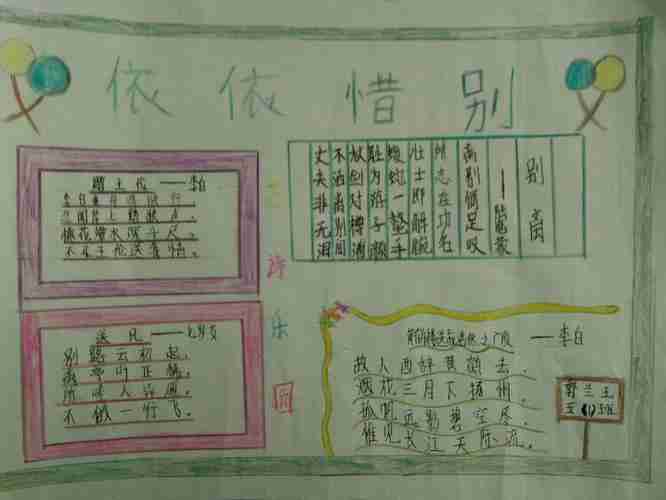 依依惜别
赠王伦——李白
李白乘舟将欲行
忽闻岸上踏歌声，
桃花潭水深千尺，
不及 送 情。
送兄——七岁女
别路云初起，
离亭叶正稀。
所 人 ，
不做一行飞。
诗
乐
园
别离
——陆龟蒙
丈夫非无泪
不洒离别间
杖剑对樽酒
耻为游子颜
蝮蛇一螫手
壮士即解腕
所志在功名
离别何足叹
黄鹤楼送孟浩然之广陵——李白
故人西辞黄鹤去，
烟花三月下扬州，
孤帆远影碧空尽，
惟见长江天际流。
兰玉
五(1)班